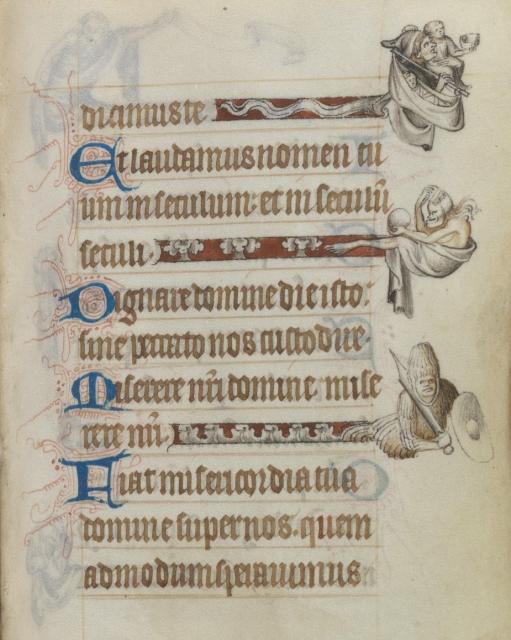 dicimus te
Et laudamus nomen tu
um in seculum et in seculū
seculi.
Dignare domine die isto:
sine peccato nos custodire.
Miserere nr̄i domine mise
rere nr̄i.
Fiat misericordia tua
domine super nos. quem
admodum speravimus